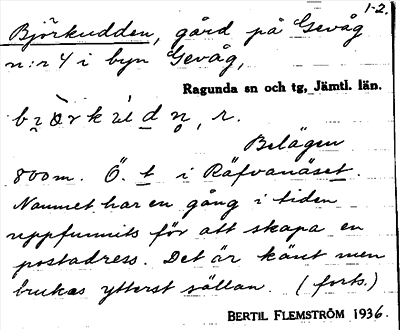 1-2.
Björkudden, gård på Gevåg
n:r 4 i byn Gevåg,
Ragunda sn och tg, Jämtl. län.
Belägen
800 m. Ö. t i Räfvanäset.
Namnet har en gång i tiden
uppfunnits för att skapa en
postadress. Det är känt men
brukas ytterst sällan. (forts.)
BERTIL FLEMSTRÖM 1936.